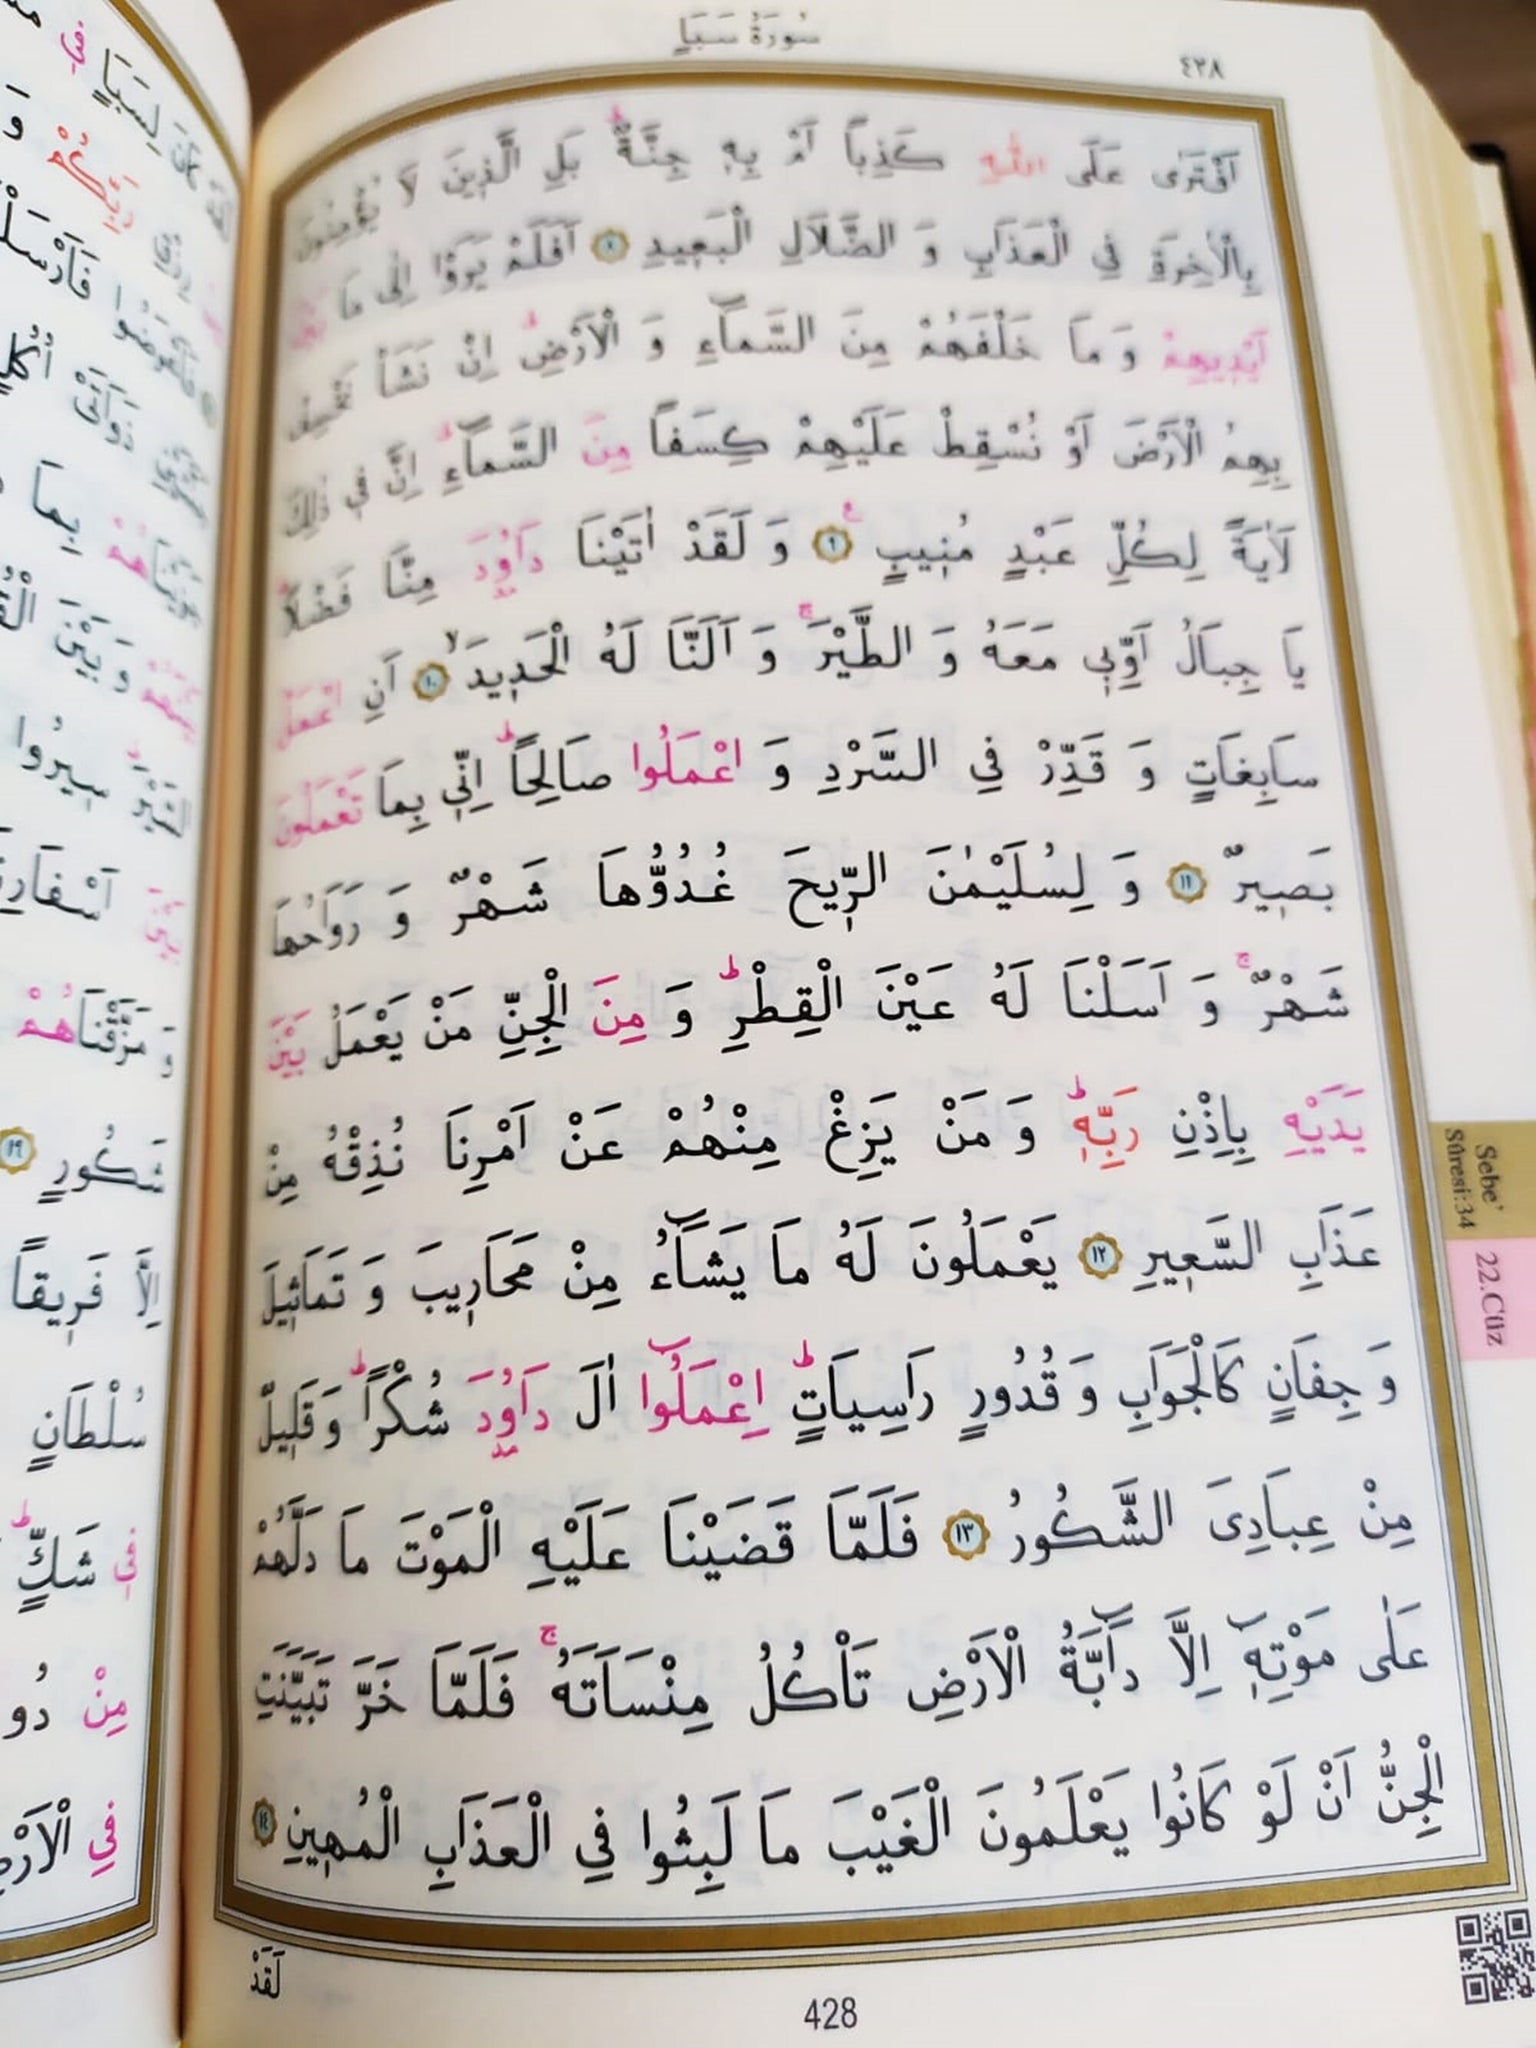 سُورَةُ سَبَأٍ
٤٢٨
اَفْتَرٰى عَلَى اللّٰهِ كَذِباً اَمْ بِهٖ جِنَّةٌۜ بَلِ الَّذٖينَ لَا يُؤْمِنُونَ
بِالْاٰخِرَةِ فِي الْعَذَابِ وَ الضَّلَالِ الْبَعٖيدِ ﴿٨﴾ اَفَلَمْ يَرَوْا اِلٰى مَا بَيْنَ
اَيْدٖيهِمْ وَ مَا خَلْفَهُمْ مِنَ السَّمَٓاءِ وَ الْاَرْضِۜ اِنْ نَشَأْ نَخْسِفْ
بِهِمُ الْاَرْضَ اَوْ نُسْقِطْ عَلَيْهِمْ كِسَفاً مِنَ السَّمَٓاءِۜ اِنَّ فٖي ذٰلِكَ
لَاٰيَةً لِكُلِّ عَبْدٍ مُنٖيبٍ ﴿٩﴾ وَ لَقَدْ اٰتَيْنَا دَاوُ۫دَ مِنَّا فَضْلاًۜ
يَا جِبَالُ اَوِّبٖي مَعَهُ وَ الطَّيْرَۚ وَ اَلَنَّا لَهُ الْحَدٖيدَۙ ﴿١٠﴾ اَنِ اعْمَلْ
سَابِغَاتٍ وَ قَدِّرْ فِي السَّرْدِ وَ اعْمَلُوا صَالِحاًۜ اِنّٖي بِمَا تَعْمَلُونَ
بَصٖيرٌ ﴿١١﴾ وَ لِسُلَيْمٰنَ الرّٖيحَ غُدُوُّهَا شَهْرٌ وَ رَوَاحُهَا
شَهْرٌۚ وَ اَسَلْنَا لَهُ عَيْنَ الْقِطْرِۜ وَ مِنَ الْجِنِّ مَنْ يَعْمَلُ بَيْنَ
يَدَيْهِ بِاِذْنِ رَبِّهٖۜ وَ مَنْ يَزِغْ مِنْهُمْ عَنْ اَمْرِنَا نُذِقْهُ مِنْ
عَذَابِ السَّعٖيرِ ﴿١٢﴾ يَعْمَلُونَ لَهُ مَا يَشَٓاءُ مِنْ مَحَارٖيبَ وَ تَمَاثٖيلَ
وَ جِفَانٍ كَالْجَوَابِ وَ قُدُورٍ رَاسِيَاتٍۜ اِعْمَلُٓوا اٰلَ دَاوُ۫دَ شُكْراًۜ وَ قَلٖيلٌ
مِنْ عِبَادِيَ الشَّكُورُ ﴿١٣﴾ فَلَمَّا قَضَيْنَا عَلَيْهِ الْمَوْتَ مَا دَلَّهُمْ
عَلٰى مَوْتِهٖٓ اِلَّا دَٓابَّةُ الْاَرْضِ تَأْكُلُ مِنْسَاَتَهُۚ فَلَمَّا خَرَّ تَبَيَّنَتِ
الْجِنُّ اَنْ لَوْ كَانُوا يَعْلَمُونَ الْغَيْبَ مَا لَبِثُوا فِي الْعَذَابِ الْمُهٖينِ ﴿١٤﴾
لَقَدْ
428
Sebe'
Sûresi:34
22.Cüz
لِسَبَأٍ فٖي
فَاَرْسَلْ
بِمَا
وَ بَيْنَ الْقُ
سٖيرُوا
بَيْنَ اَسْفَارِنَ
وَ مَزَّقْنَاهُمْ
شَكُورٍ ﴿١٩﴾
اِلَّا فَرٖيقاً
سُلْطَانٍ
فٖي شَكٍّۜ
مِنْ دُو
فِي الْاَرْضِ